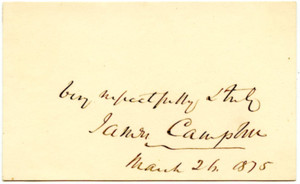 very respectfully & truly
James Campbell
March 26. 1875